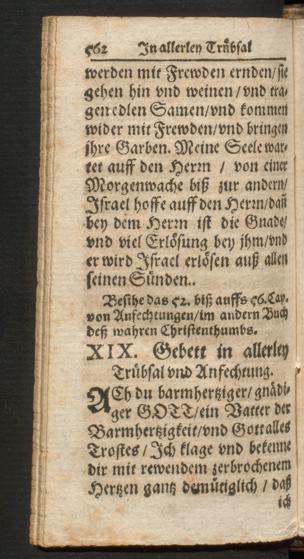 562 In allerley Trübsal
werden mit Frewden ernden/sie
gehen hin vnd weinen/vnd tra-
gen edlen Samen/vnd kommen
wider mit Frewden/vnd bringen
jhre Garben. Meine Seele war-
tet auff den Herrn / von einer
Morgenwache biß zur andern/
Israel hoffe auff den Herrn/dañ
bey dem Herrn ist die Gnade/
vnd viel Erlösung bey jhm/vnd
er wird Israel erlösen auß allen
seinen Sünden..
Besihe das 52. biß auffs 56. Cap.
von Anfechtungen/im andern Buch
deß wahren Christenthumbs.
XIX. Gebett in allerley
Trübsal vnd Anfechtung.
ACh du barmhertziger/gnädi-
ger GOTT/ein Vatter der
Barmhertzigkeit/vnd Gott alles
Trostes/Ich klage vnd bekenne
dir mit rewendem zerbrochenem
Hertzen gantz demütiglich / daß
ich